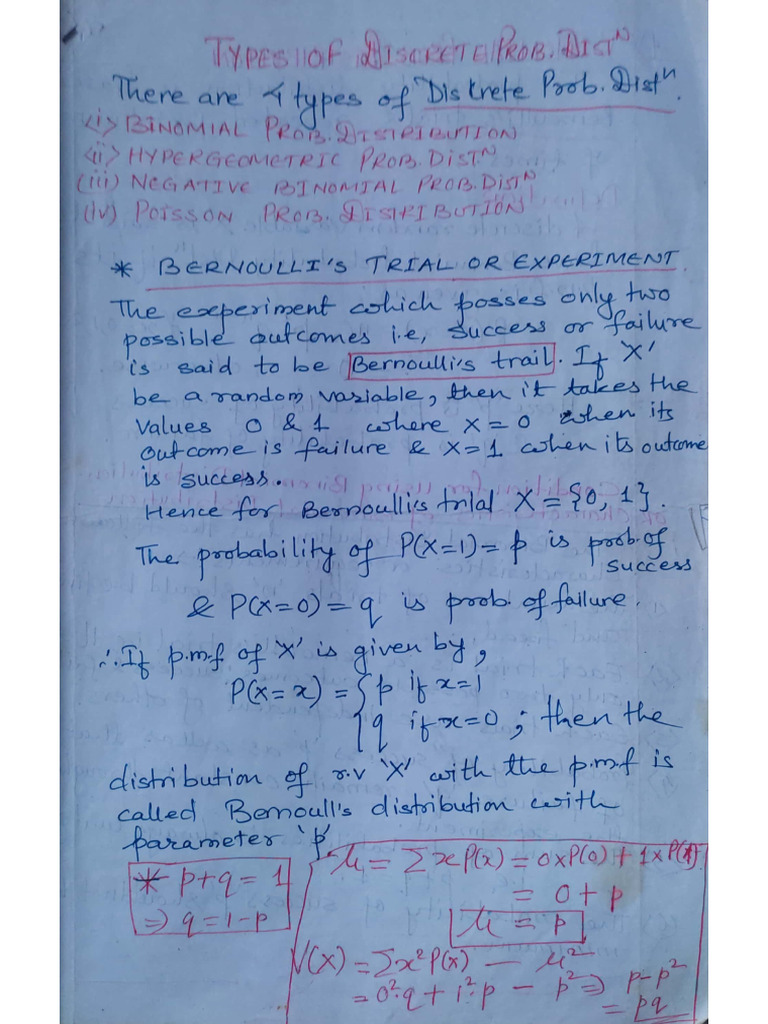 TYPES OF DISCRETE PROB. DISTᴺ
There are 4 types of Diskrete Prob. Distⁿ.
<i> BINOMIAL PROB. DISTRIBUTION
<ii> HYPERGEOMETRIC PROB. DISTᴺ
(iii) NEGATIVE BINOMIAL PROB. DISTᴺ
(iv) POISSON PROB. DISTRIBUTION
* BERNOULLI'S TRIAL OR EXPERIMENT
The experiment which posses only two
possible outcomes i.e, success or failure
is said to be Bernoulli's trail. If 'X'
be a random variable, then it takes the
values 0 & 1 where x = 0 when its
outcome is failure & x=1 when its outcome
is success.
Hence for Bernoulli's trial X = {0, 1}.
The probability of P(X=1) = p is prob. of
success
& P(X=0) = q is prob. of failure.
∴ If p.m.f of 'X' is given by,
P(X=x) = { p if x=1
q if x=0 ; then the
distribution of r.v 'X' with the p.m.f is
called Bernoull's distribution with
parameter 'p'
* p+q = 1
=> q = 1-p
μ₁ = Σ x P(x) = 0xP(0) + 1xP(1)
= 0 + p
μ = p
V(X) = Σx²P(x) - μ²
= 0²·q + 1²·p - p² => p-p²
= pq